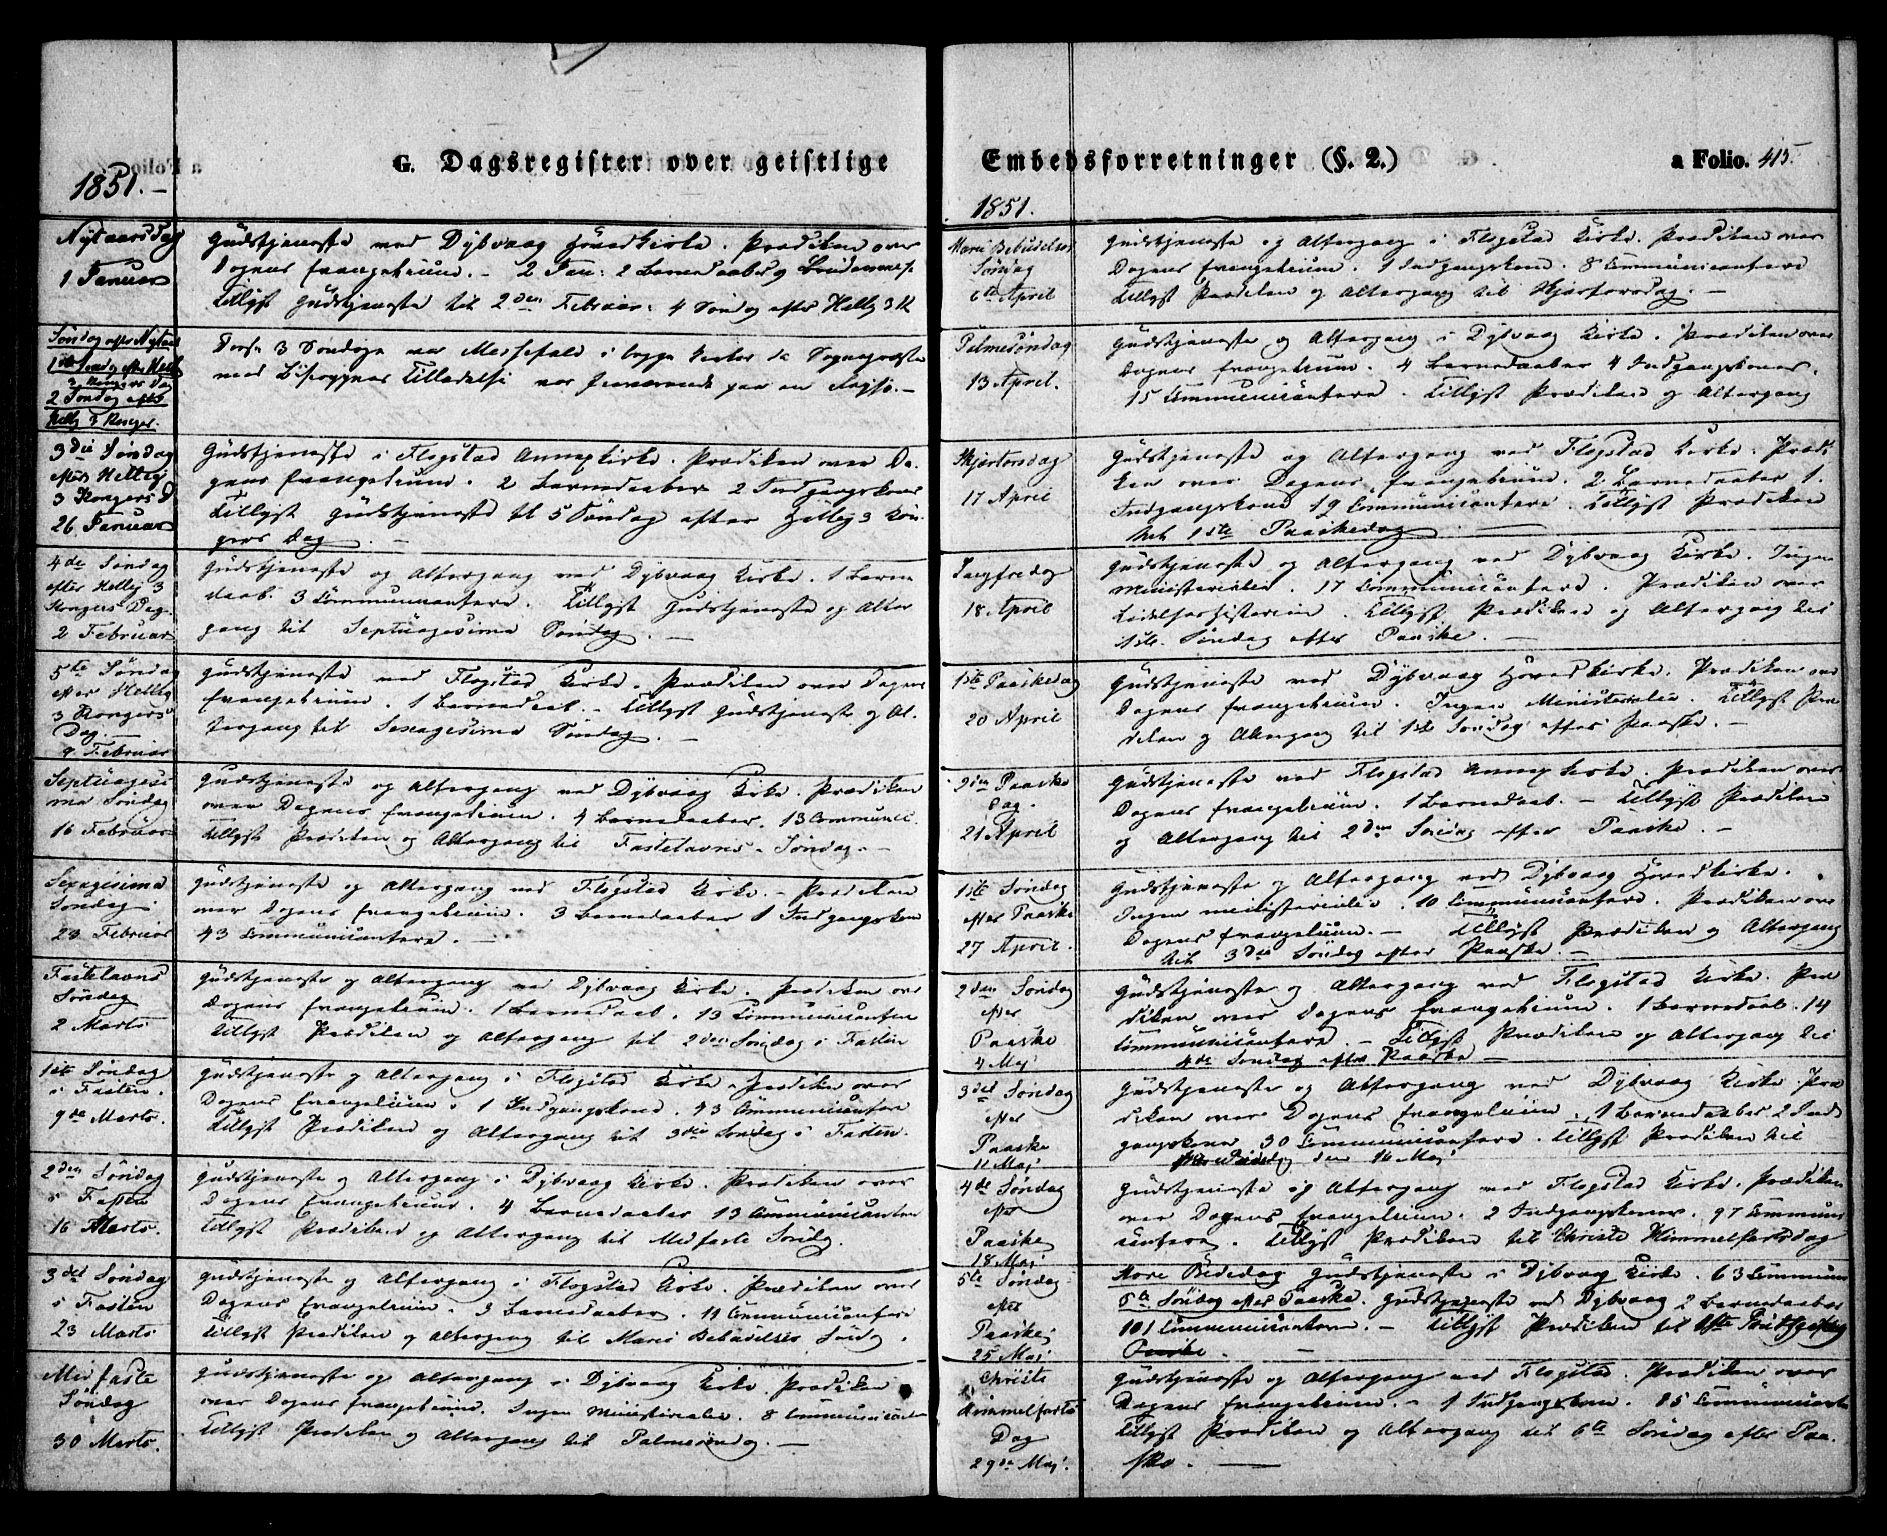 G. Dagsregister over geistlige
1851.
Nytaarsdag
1 Januar
Gudstjeneste ved Dybvaag Hovedkirke. Prædiken over
Dagens Evangelium. - 2 Jan: 2 Barnedaab og Brudemesse
Tillyst Gudstjeneste til 2den Februar: 4 Søndag efter Hellig 3 K
Søndag efter Nytaar
1ste Søndag efter Hellig
3 Kongers Dag
2 Søndag efter
Hellig 3 Konger.
Disse 3 Søndage var Messefald i begge Kirker da Sognepræsten
med Bispens Tilladelse var fraværende paa en Rejse. -
3die Søndag
efter Hellig
3 Kongers D
26 Januar
Gudstjeneste i Flagstad Annexkirke. Prædiken over Da-
gens Evangelium. 2 Barnedaaber 2 Indgangskoner
Tillyst Gudstjeneste til 5 Søndag efter Hellig 3 Kon-
gers Dag. -
4de Søndag
efter Hellig 3
Kongers Dag.
2 Februar
Gudstjeneste og Altergang ved Dybvaag Kirke. 1 Barne
daab. 3 Communicantere. Tillyst Gudstjeneste og Alter
gang til Septuagesima Søndag. -
5te Søndag
efter Hellig
3 Kongers
Dag. -
9 Februar
Gudstjeneste ved Flagstad Kirke. Prædiken over Dagens
Evangelium. 1 Barnedaab. - Tillyst Gudstjeneste og Al-
tergang til Sexagesima Søndag. -
Septuagesi
ma Søndag
16 Februar
Gudstjeneste og Altergang ved Dybvaag Kirke. Prædiken
over Dagens Evangelium. 4 Barnedaaber. 13 Communic.
Tillyst Prædiken og Altergang til Fastelavns-Søndag. -
Sexagesima
Søndag
23 Februar
Gudstjeneste og Altergang ved Flagstad Kirke. - Prædiken
over Dagens Evangelium. 3 Barnedaaber 1 Indgangskone
43 Communicantere. -
Fastelavns
Søndag
2 Marts
Gudstjeneste og Altergang ved Dybvaag Kirke. Prædiken over
Dagens Evangelium. 1 Barnedaab. 13 Communicantere
Tillyst Prædiken og Altergang til 2den Søndag i Fasten
1ste Søndag
i Fasten.
9de Marts.
Gudstjeneste og Altergang i Flagstad Kirke. Prædiken over
Dagens Evangelium. 1 Indgangskone. 43 Communicantere
Tillyst Prædiken og Altergang til 3die Søndag i Fasten.
2den Søndag
i Fasten
16 Marts.
Gudstjeneste og Altergang i Dybvaag Kirke. Prædiken over
Dagens Evangelium. 4 Barnedaaber 13 Communicantere
Tillyst Prædiken og Altergang til Midfaste Søndag.
3die Søndag
i Fasten
23 Marts
Gudstjeneste og Altergang i Flagstad Kirke. Prædiken over
Dagens Evangelium. 3 Barnedaaber. 11 Communicantere
Tillyst Prædiken og Altergang til Mariæ Bebudelses Søndag.
Midfaste
Søndag
30 Marts.
Gudstjeneste og Altergang i Dybvaag Kirke. Prædiken
over Dagens Evangelium. Ingen Ministerialer. 8 Communicanter
Tillyst Prædiken og Altergang til Palmesøndag. -
Embedsforretninger (§. 2.)
a Folio. 415.
1851.
Mariæ Bebudelses
Søndag
6te April
Gudstjeneste og Altergang i Flagstad Kirke. Prædiken over
Dagens Evangelium. 1 Indgangskone. 8 Communicantere
Tillyst Prædiken og Altergang til Skjærtorsdag. -
Palmesøndag
13 April.
Gudstjeneste og Altergang i Dybvaag Kirke. Prædiken over
Dagens Evangelium. 4 Barnedaaber 4 Indgangskoner.
15 Communicantere. Tillyst Prædiken og Altergang
Skjærtorsdag
17 April
Gudstjeneste og Altergang ved Flagstad Kirke. Prædi
ken over Dagens Evangelium. 2 Barnedaaber 1.
Indgangskone 19 Communicantere. Tillyst Prædiken
til 1ste Paaskedag
Langfredag
18 April
Gudstjeneste og Altergang ved Dybvaag Kirke. Ingen
Ministerialer. 17 Communicantere. Prædiken over
Lidelseshistorien. Tillyst Prædiken og Altergang til
1ste Søndag efter Paaske. -
1ste Paaskedag
20 April
Gudstjeneste ved Dybvaag Hovedkirke. Prædiken over
Dagens Evangelium. Ingen Ministerialer. Tillyst Præ
diken og Altergang til 1ste Søndag efter Paaske. -
2den Paaske
dag.
21 April
Gudstjeneste ved Flagstad Annexkirke. Prædiken over
Dagens Evangelium. 1 Barnedaab. - Tillyst Prædiken
og Altergang til 2den Søndag efter Paaske. -
1ste Søndag
efter Paaske
27 April.
Gudstjeneste og Altergang ved Dybvaag Hovedkirke.
Ingen Ministerialer. 10 Communicantere. Prædiken over
Dagens Evangelium. - Tillyst Prædiken og Altergang
til 3die Søndag efter Paaske. -
2den Søndag
efter
Paaske
4 Maj
Gudstjeneste og Altergang ved Flagstad Kirke. Præ
diken over Dagens Evangelium. 1 Barnedaab. 14
Communicantere. - Tillyst Prædiken og Altergang til
4de Søndag efter Paaske -
3die Søndag
efter
Paaske
11 Maj
Gudstjeneste og Altergang ved Dybvaag Kirke Præ
diken over Dagens Evangelium. 1 Barnedaaber 2 Ind
gangskoner 30 Communicantere. Tillyst Prædiken til
Store Bededag den 16 Maj
4de Søndag
efter
Paaske
18 Maj
Gudstjeneste og Altergang ved Flagstad Kirke. Prædiken
over Dagens Evangelium. 2 Indgangskoner. 97 Commun
icantere. Tillyst Prædiken til Christi Himmelfartsdag
5te Søndag
efter
Paaske
25 Maj
Store Bededag Gudstjeneste i Dybvaag Kirke. 63 Commun
5te Søndag efter Paaske. Gudstjeneste ved Dybvaag 2 Barnedaaber
101 Communicantere. - Tillyst Prædiken til 1ste Pintsedag
Christi
Himmelfarts
Dag
29de Maj.
Gudstjeneste og Altergang ved Flagstad. Prædiken over
Dagens Evangelium. - 1 Indgangskone. 85 Communicante
Tillyst Prædiken og Altergang til 6te Søndag efter Paa-
ske. -